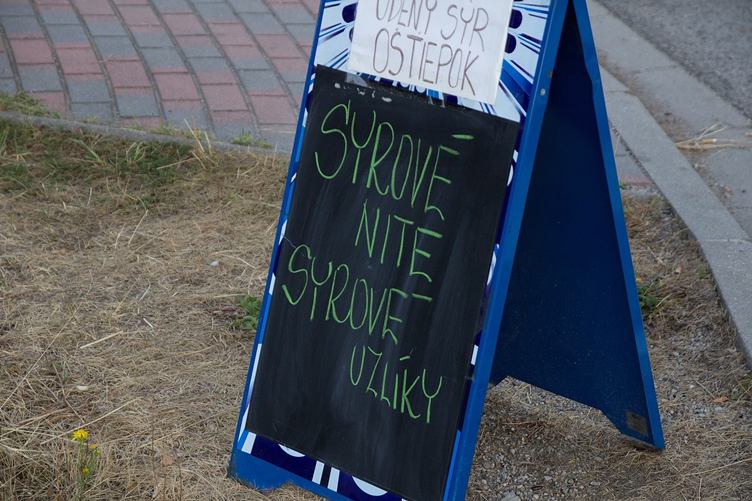 UDENÝ SÝR
OŠTIEPOK
SYROVÉ
NITĚ
SYROVÉ
UZLÍKY